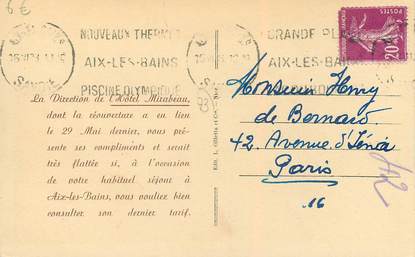 6€
NOUVEAUX THERMES
AIX-LES-BAINS
PISCINE OLYMPIQUE
GRANDE
AIX-LES-BAINS
POSTES
20c
La Direction de l'Hôtel Mirabeau,
dont la réouverture a eu lieu
le 29 Mai dernier, vous pré-
sente ses compliments et serait
très flattée si, à l'occasion
de votre habituel séjour à
Aix-les-Bains, vous vouliez bien
consulter son dernier tarif.
Monsieur Henry
de Bernard
42. Avenue d'Iéna
Paris
16